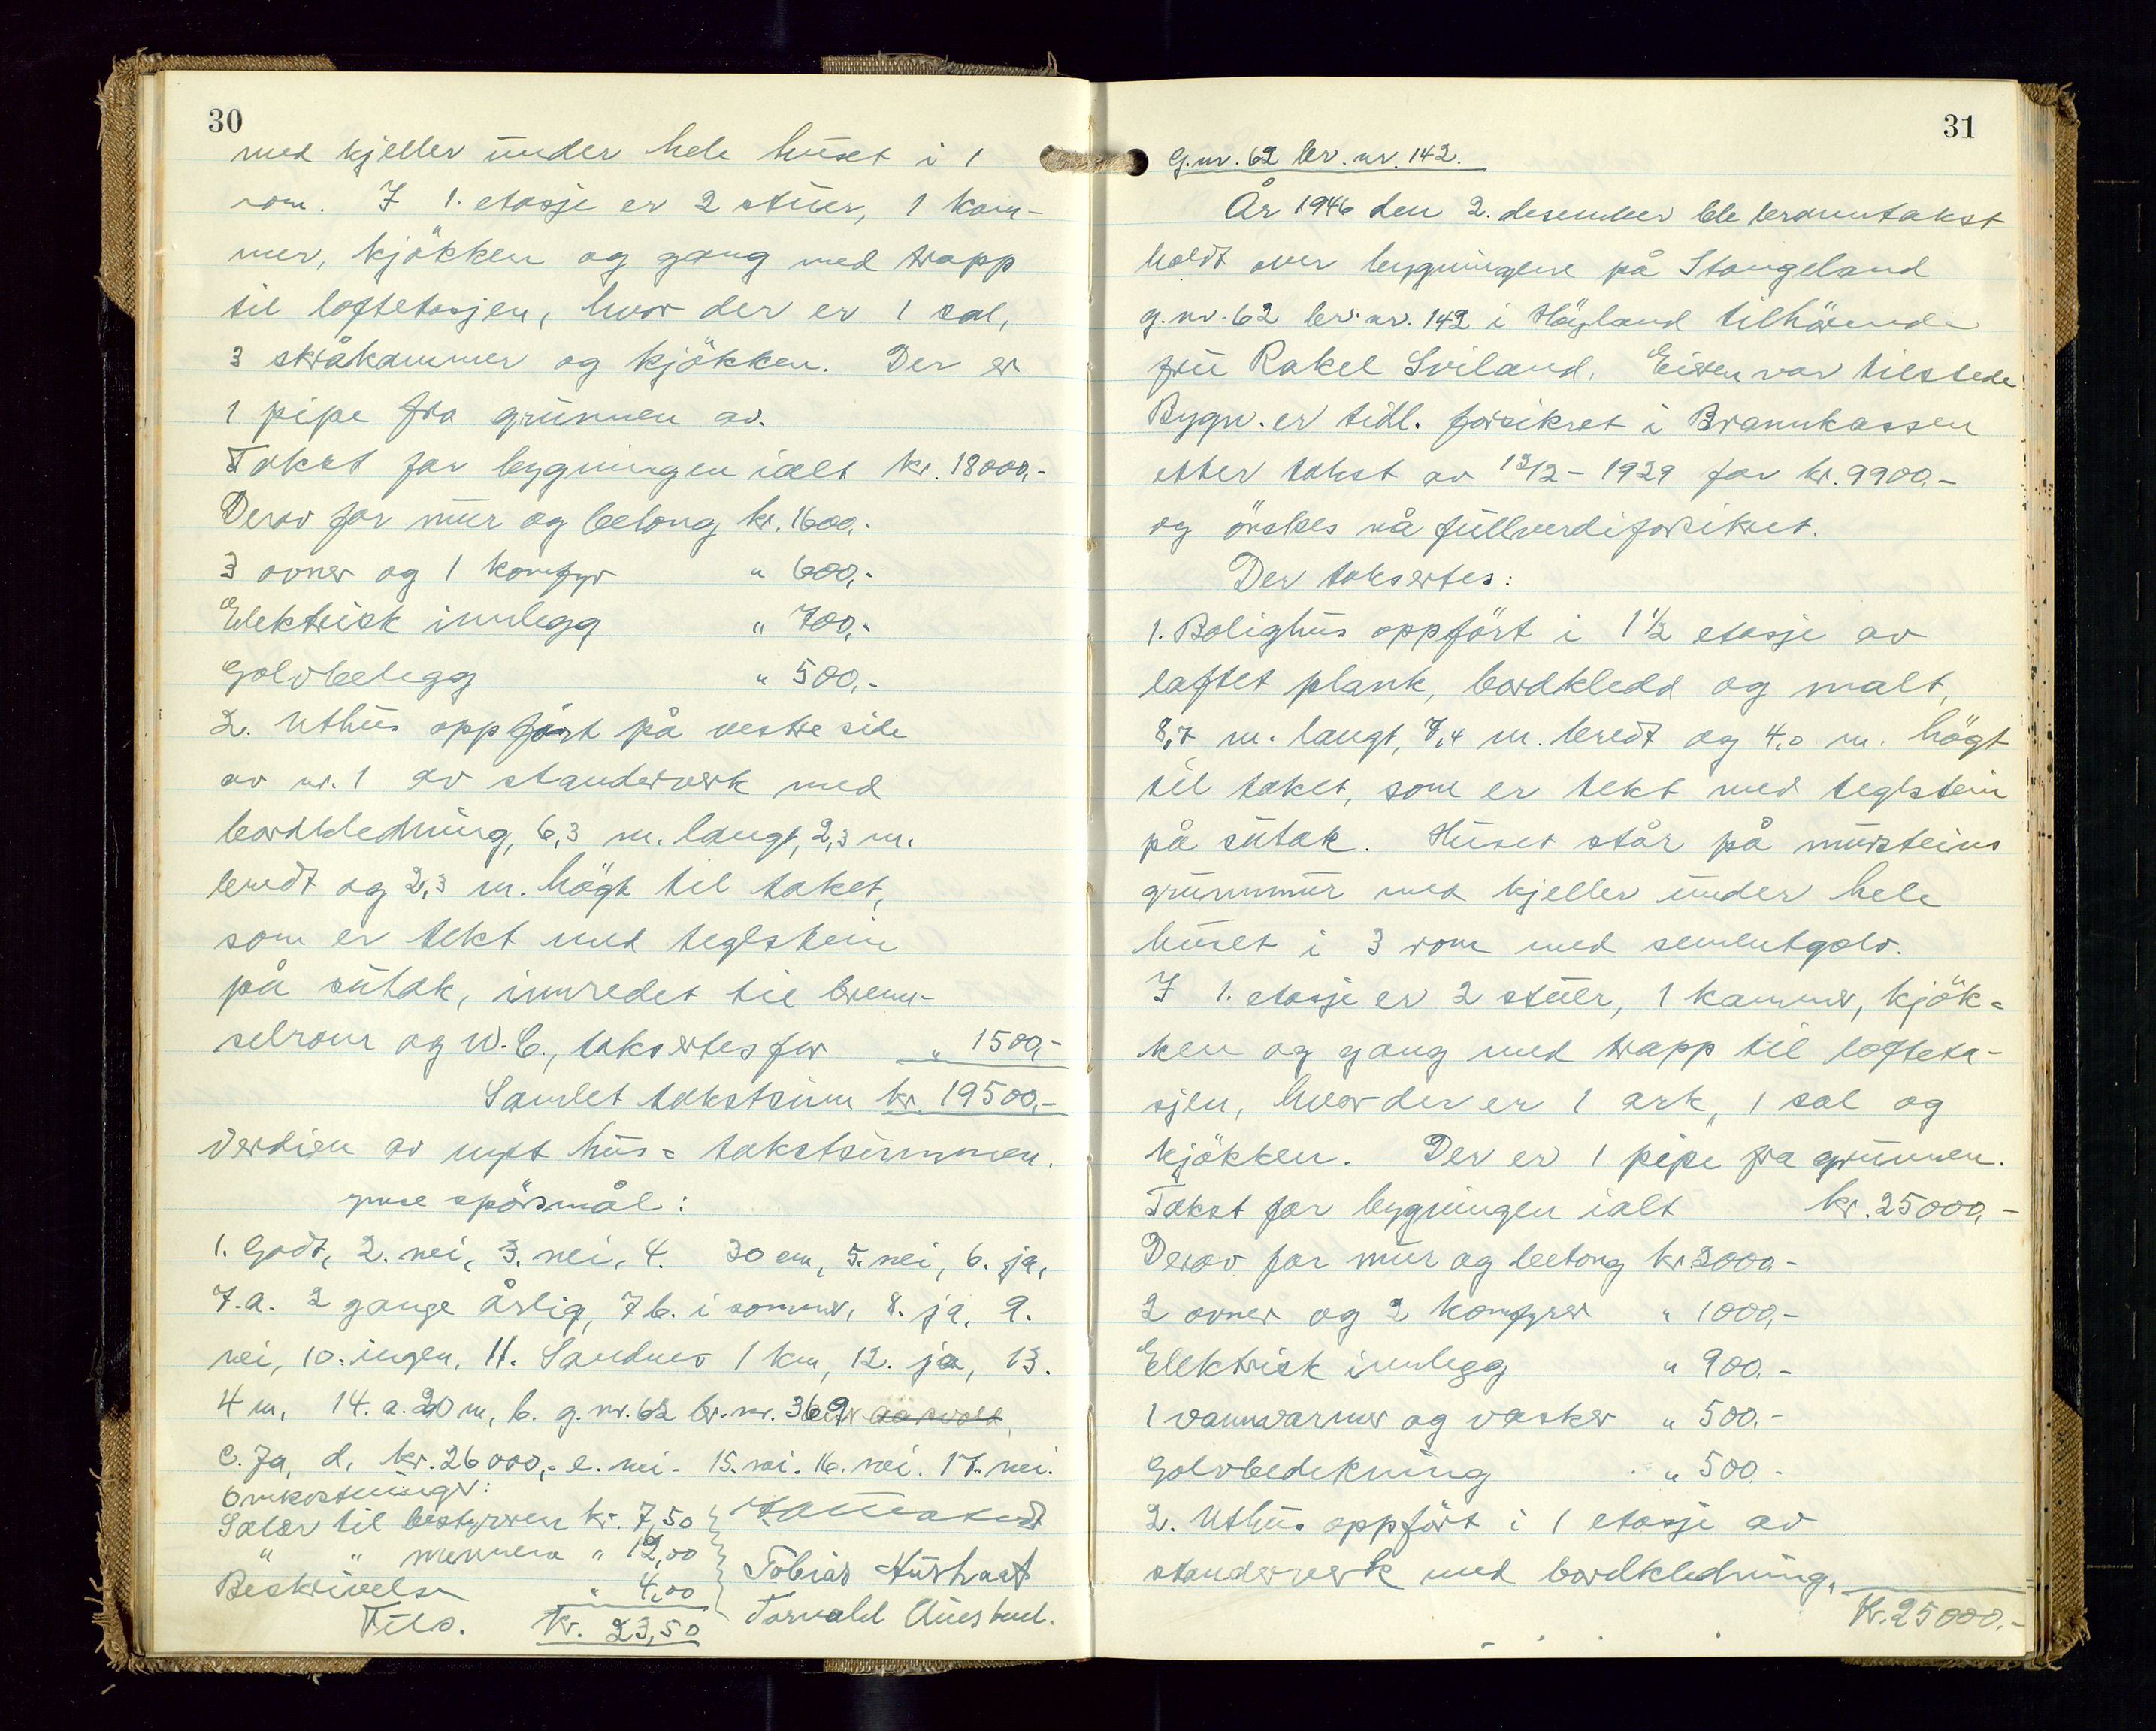 30
med kjeller under hele huset i 1
rom. I 1. etasje er 2 stuer, 1 kam-
mer, kjökken og gang med trapp
til loftetasjen, hvor der er 1 sal,
3 skråkammer og kjökken. Der er
1 pipe fra grunnen av.
Takst for bygningen ialt kr. 18000,-
Derav for mur og betong kr. 1600,-
3 ovner og 1 komfyr " 600,-
Elektrisk innlegg " 700,-
Golvbelegg " 500,-
2. Uthus oppfört på vestre side
av nr. 1 av standerverk med
bordkledning, 6,3 m. langt, 2,3 m.
bredt og 2,3 m. högt til taket,
som er tekt med teglstein
på sutak, innredet til bren-
selrom og W.C., taksertes for " 1500,-
Samlet takstsum kr. 19500,-
Verdien av nytt hus = takstsummen.
spörsmål:
1. Godt, 2. nei, 3. nei, 4. 30 cm, 5. nei, 6. ja,
7.a. 2 gange årlig, 7b. i sommer, 8. ja, 9.
nei, 10. ingen, 11. Sandnes 1 km, 12. ja, 13.
4 m, 14. a. 20 m, b. g.nr. 62 br.nr. 369
c. Ja, d. kr. 26000,- e. nei. 15. nei. 16. nei. 17. nei.
Omkostninger:
Salær til bestyreren kr. 7,50
" " mennene " 12,00
Beskrivelse " 4,00
Tils. kr. 23,50
Tobias
Torvald Austbul.
31
G.nr. 62 br.nr. 142.
År 1946 den 2. desember ble branntakst
holdt over bygningene på Stangeland
g.nr. 62 br.nr. 142 i Höyland tilhörende
fru Rakel Sviland. Eieren var tilstede.
Bygn. er tidl. forsikret i Brannkassen
etter takst av 12/12-1929 for kr. 9900,-
og önskes nå fullverdiforsikret.
Der taksertes:
1. Bolighus oppfört i 1 1/2 etasje av
laftet plank, bordkledd og malt,
8,7 m. langt, 7,4 m. bredt og 4,0 m. högt
til taket, som er tekt med teglstein
på sutak. Huset står på mursteins
grunnmur med kjeller under hele
huset i 3 rom med sementgolv.
I 1. etasje er 2 stuer, 1 kammer, kjök=
ken og gang med trapp til lofteta-
sjen, hvor der er 1 ark, 1 sal og
kjökken. Der er 1 pipe fra grunnen.
Takst for bygningen ialt kr. 25000,-
Derav for mur og betong kr. 3000,-
2 ovner og 2 komfyrer " 1000,-
Elektrisk innlegg " 900,-
1 vannvarmer og vasker " 500,-
Golvbedekning " 500,-
2. Uthus oppfört i 1 etasje av
standerverk med bordkledning,
Kr. 25000,-